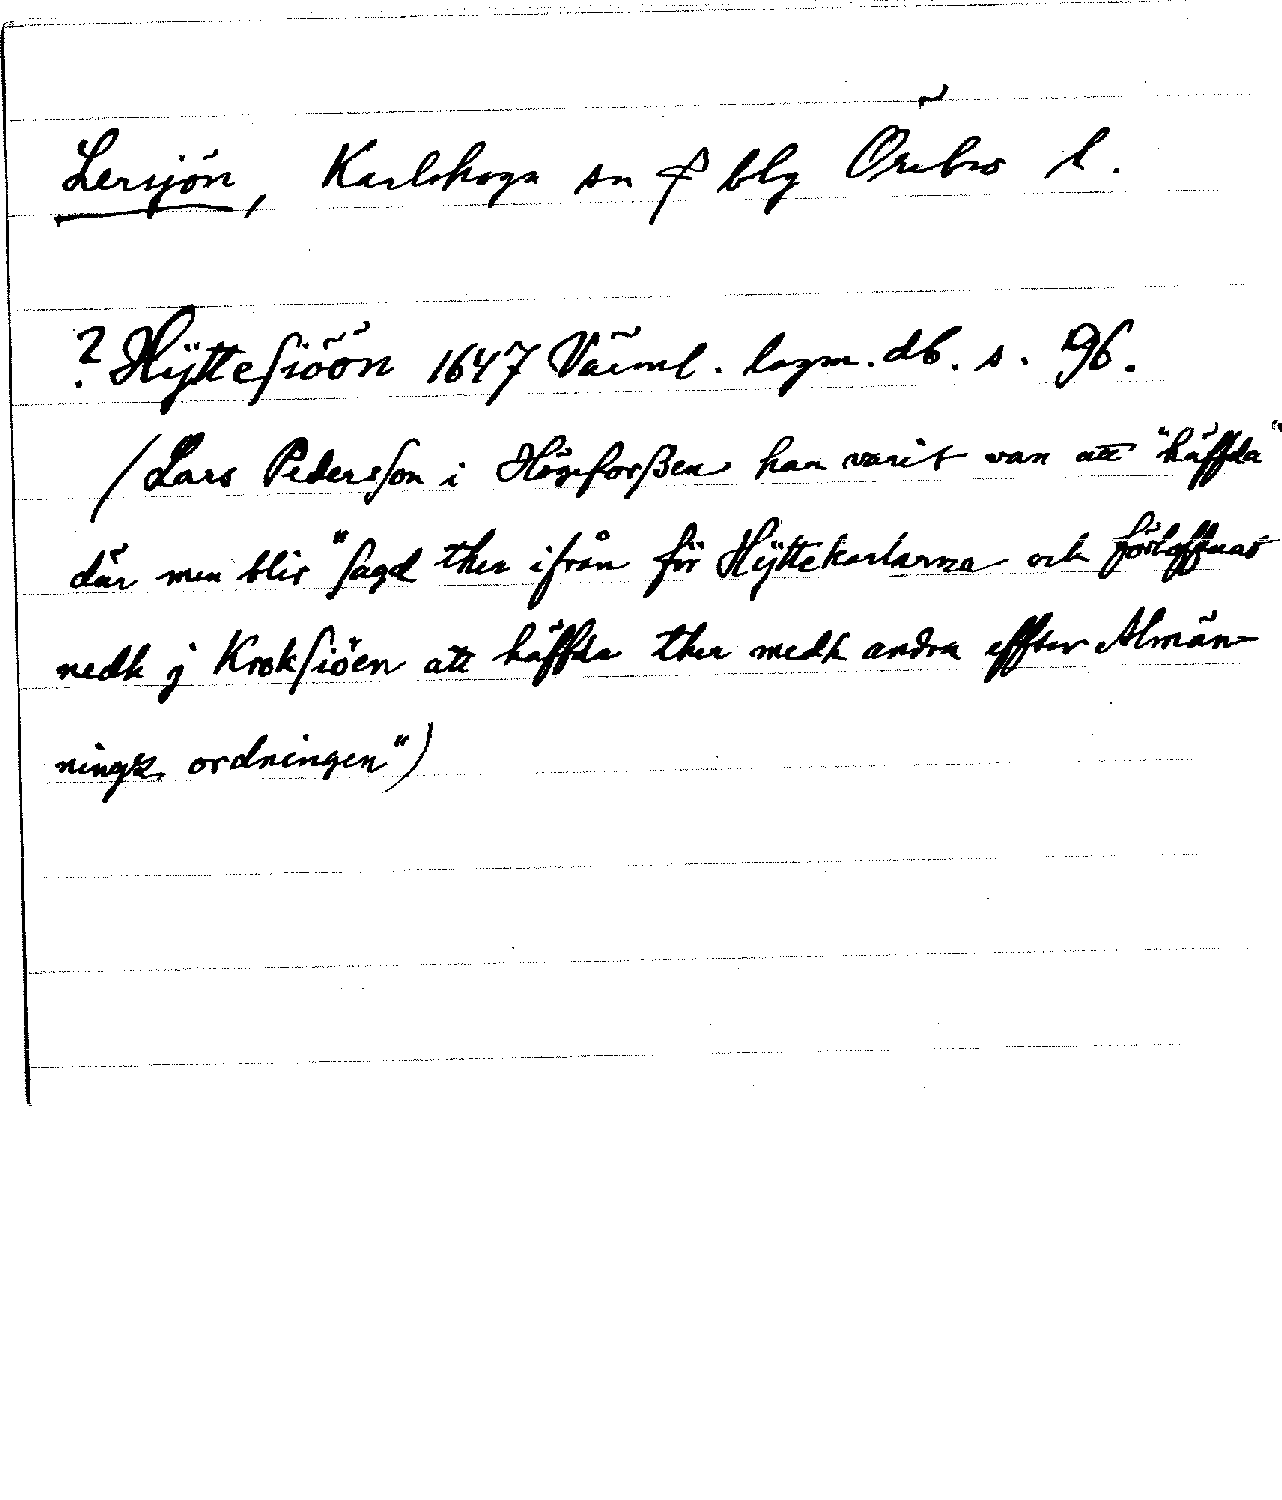 Lersjön, Karlskoga sn o blg Örebro l.
? Hÿtteſiöön 1647 Värml. lagm. db. s. 96.
(Lars Pedersſon i Högeforßen har varit van att "häffda"
där men blir "ſagd ther ifrån för Hÿttekarlarna och förloffuas
nedh j Krokſiöen att häffda ther medh andra effter Almän-
ningz ordningen")